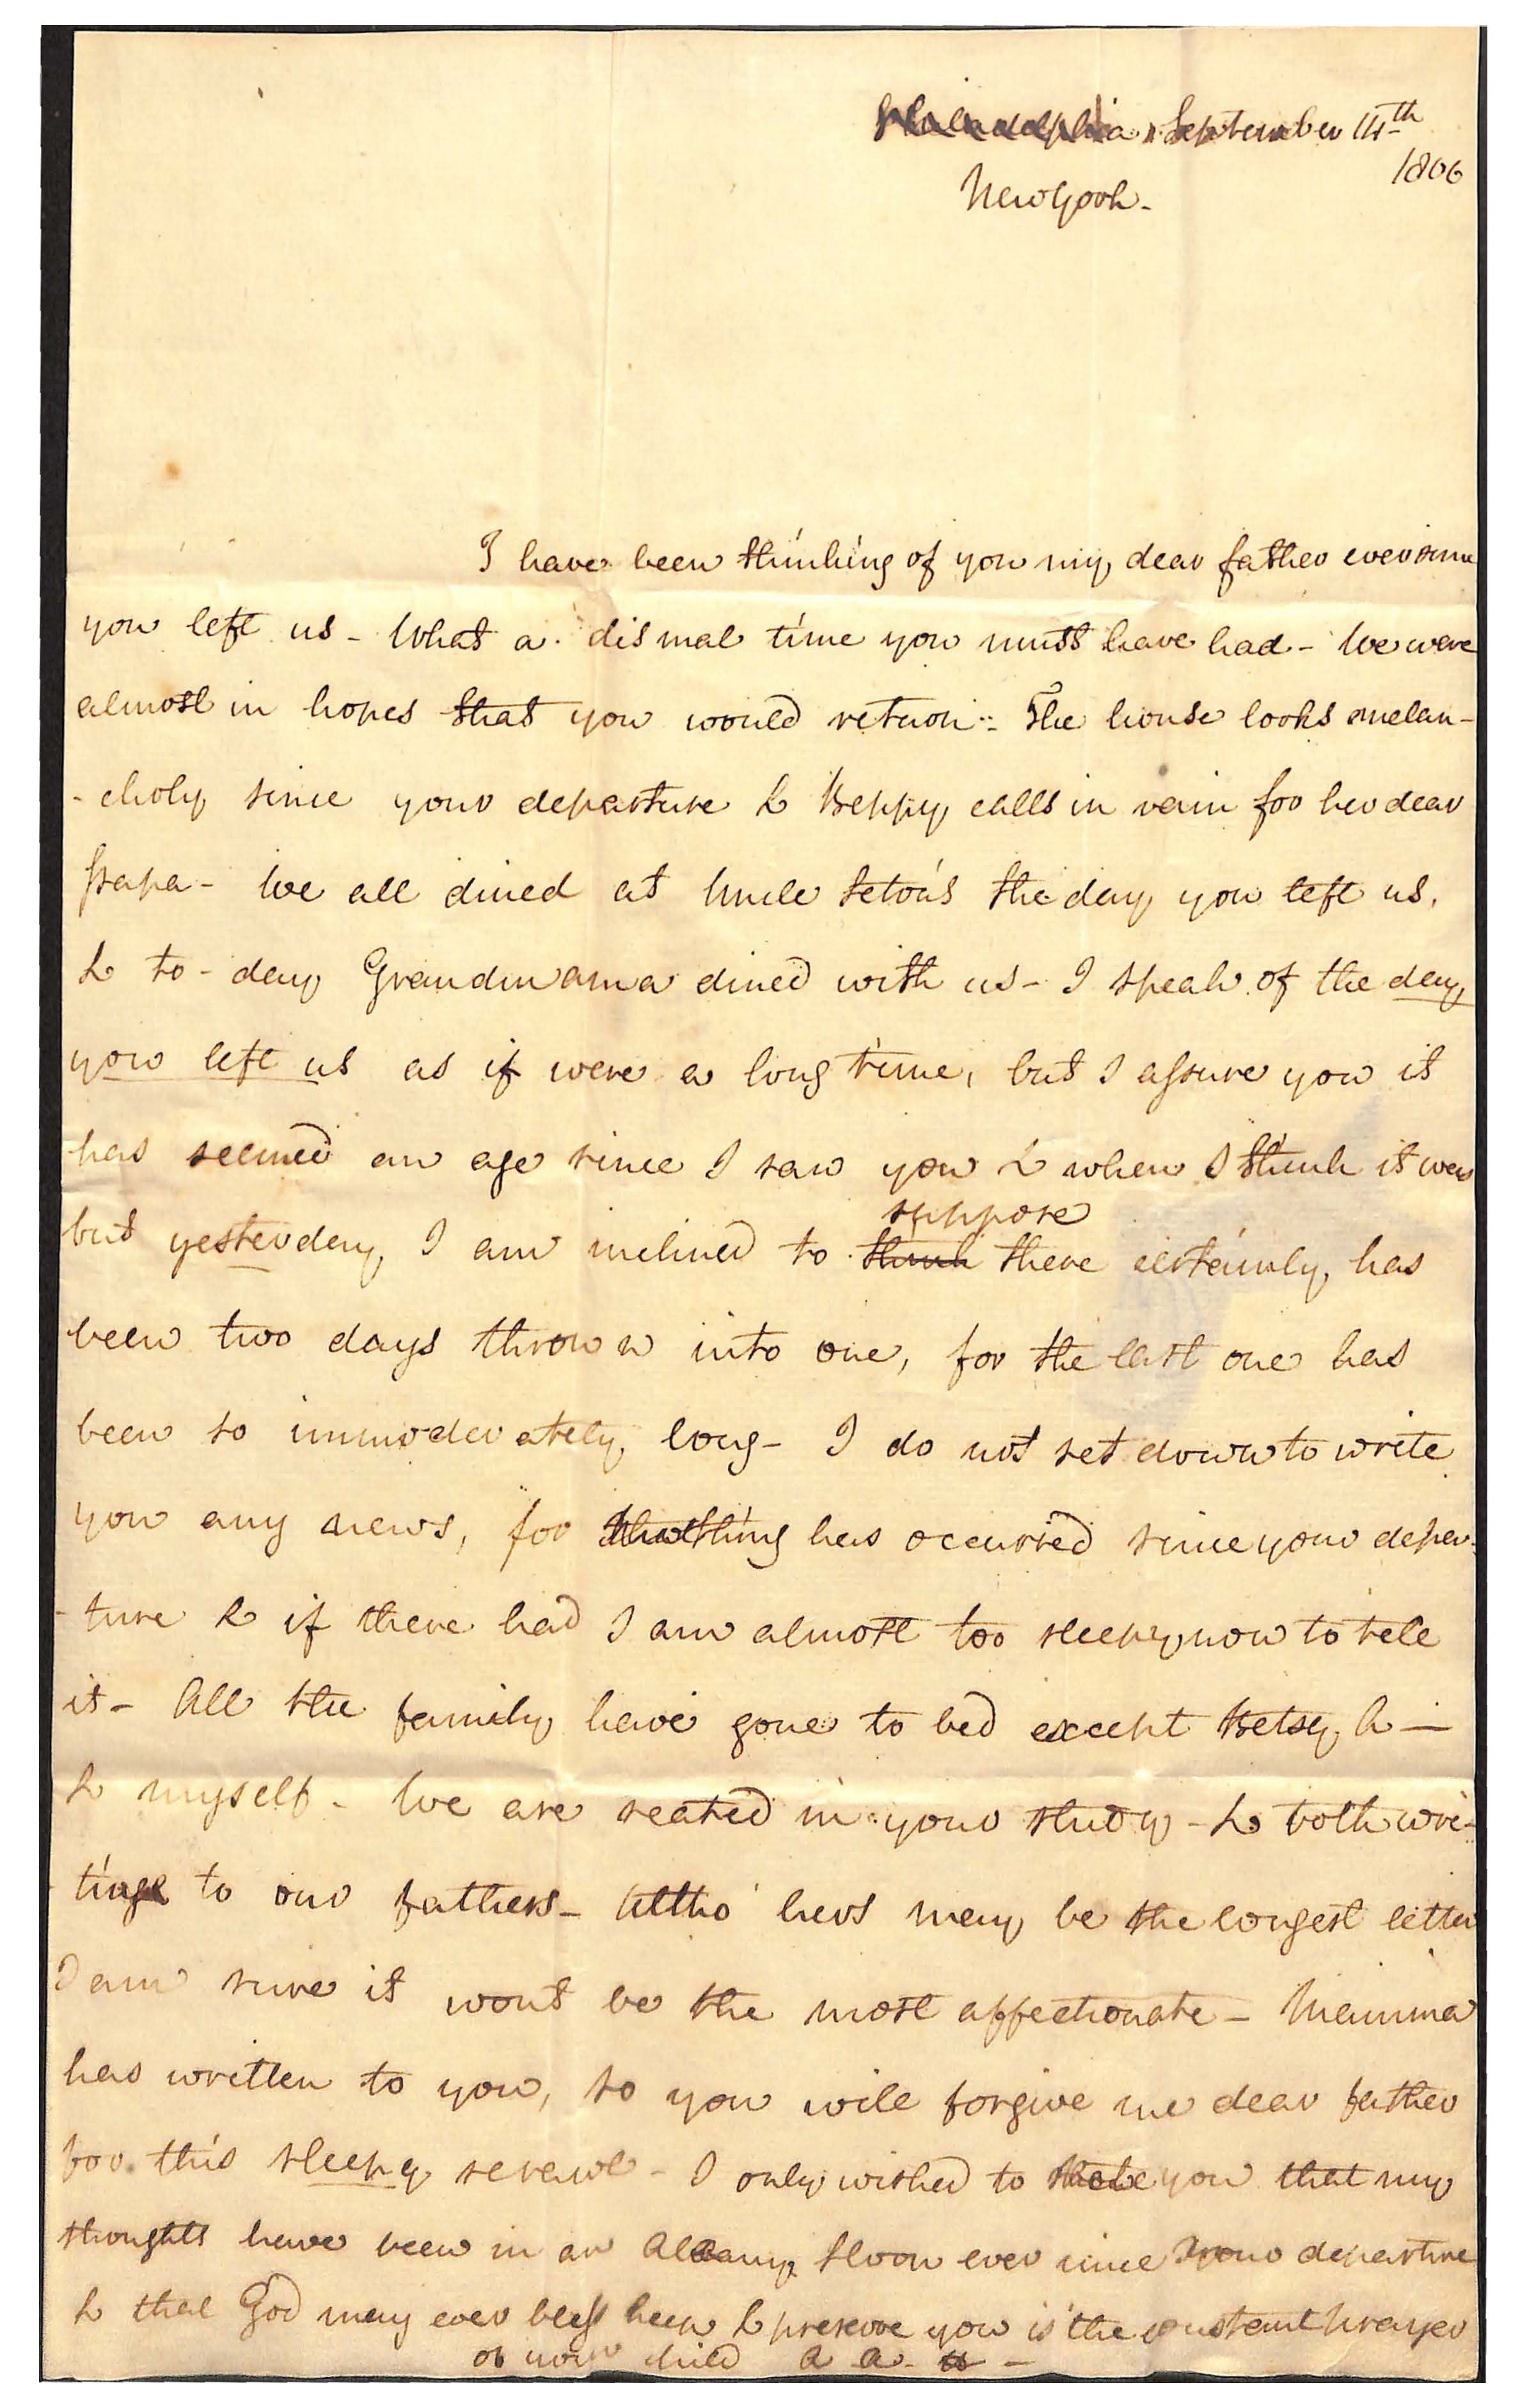 Philadelphia, September 14th
1806
New York-
I have been thinking of you my dear father ever since
you left us - What a dismal time you must have had - We were
almost in hopes that you would return - The house looks melan-
- choly since your departure & Beppy calls in vain for her dear
Papa - We all dined at Uncle Seton's the day you left us.
& to-day Grandmama dined with us - I speak of the day
you left us as if were a long time, but I assure you it
has seemed an age since I saw you & when I think it was
but yesterday, I am inclined to think suppose there certainly has
been two days thrown into one, for the last one has
been so immoderately long - I do not set down to write
you any news, for nothing has occurred since your depar-
- ture & if there had I am almost too sleepy now to tell
it - All the family have gone to bed except Betsy A —
& myself - We are seated in your study - & both wri-
- ting to our fathers - Altho' hers may be the longest letter
I am sure it wont be the most affectionate - Mamma
has written to you, so you will forgive me dear father
for this sleepy scrawl - I only wished to you that my
thoughts have been in an Albany Sloop ever since your departure
& that God may ever bless keep & preserve you is the constant prayer
of your child A A -